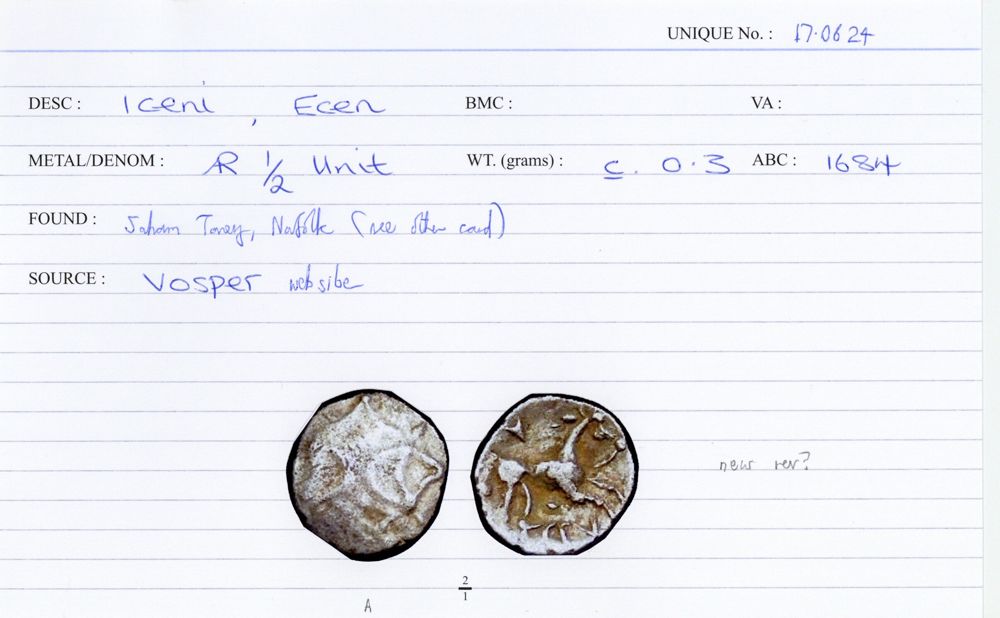 UNIQUE No. : 17.0624
DESC : Iceni, Ecen BMC : VA :
METAL/DENOM : AR 1/2 Unit WT. (grams) : c. 0.3 ABC : 1684
FOUND : Saham Toney, Norfolk (see other card)
SOURCE : Vosper website
new rev?
2/1
A